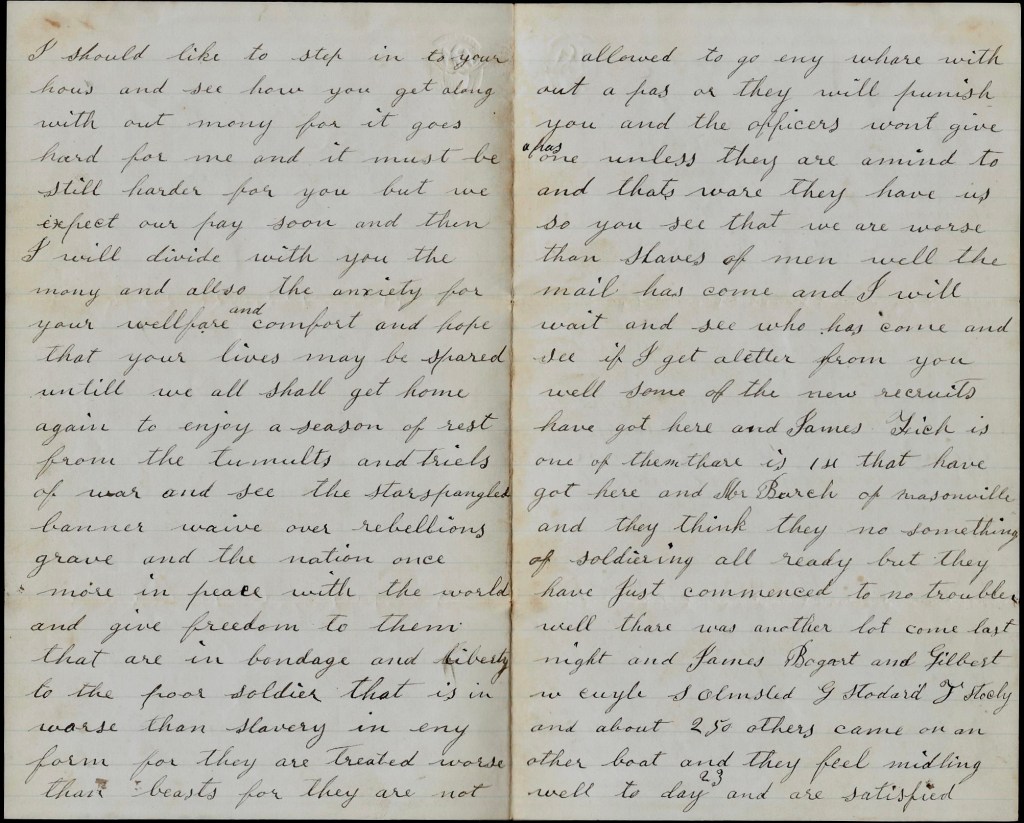 I should like to step in to your
hous and see how you get along
with out mony for it goes
hard for me and it must be
still harder for you but we
expect our pay soon and then
I will divide with you the
mony and allso the anxiety for
your wellfare and comfort and hope
that your lives may be spared
untill we all shall get home
again to enjoy a season of rest
from the tumults and triels
of war and see the starspangled
banner waive over rebellions
grave and the nation once
more in peace with the world
and give freedom to them
that are in bondage and liberty
to the poor soldier that is in
worse than slavery in eny
form for they are treated worse
than beasts for they are not
allowed to go eny whare with
out a pas or they will punish
you and the officers wont give
a pas one unless they are amind to
and thats ware they have us
so you see that we are worse
than slaves of men well the
mail has come and I will
wait and see who has come and
see if I get aletter from you
well some of the new recruits
have got here and James is
one of them thare is that have
got here and Mr Burch of masonville
and they think they no something
of soldiering all ready but they
have just commenced to no trouble
well thare was another lot come last
night and James Bogart and Gilbert
w S Olmsted G Stodard
and about 250 others came on an
other boat and they feel midling
well to day 23 and are satisfied